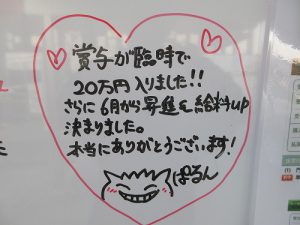 賞与が臨時で
20万円入りました!!
さらに6月から昇進&給料up
決まりました。
本当にありがとうございます!
ぱるん